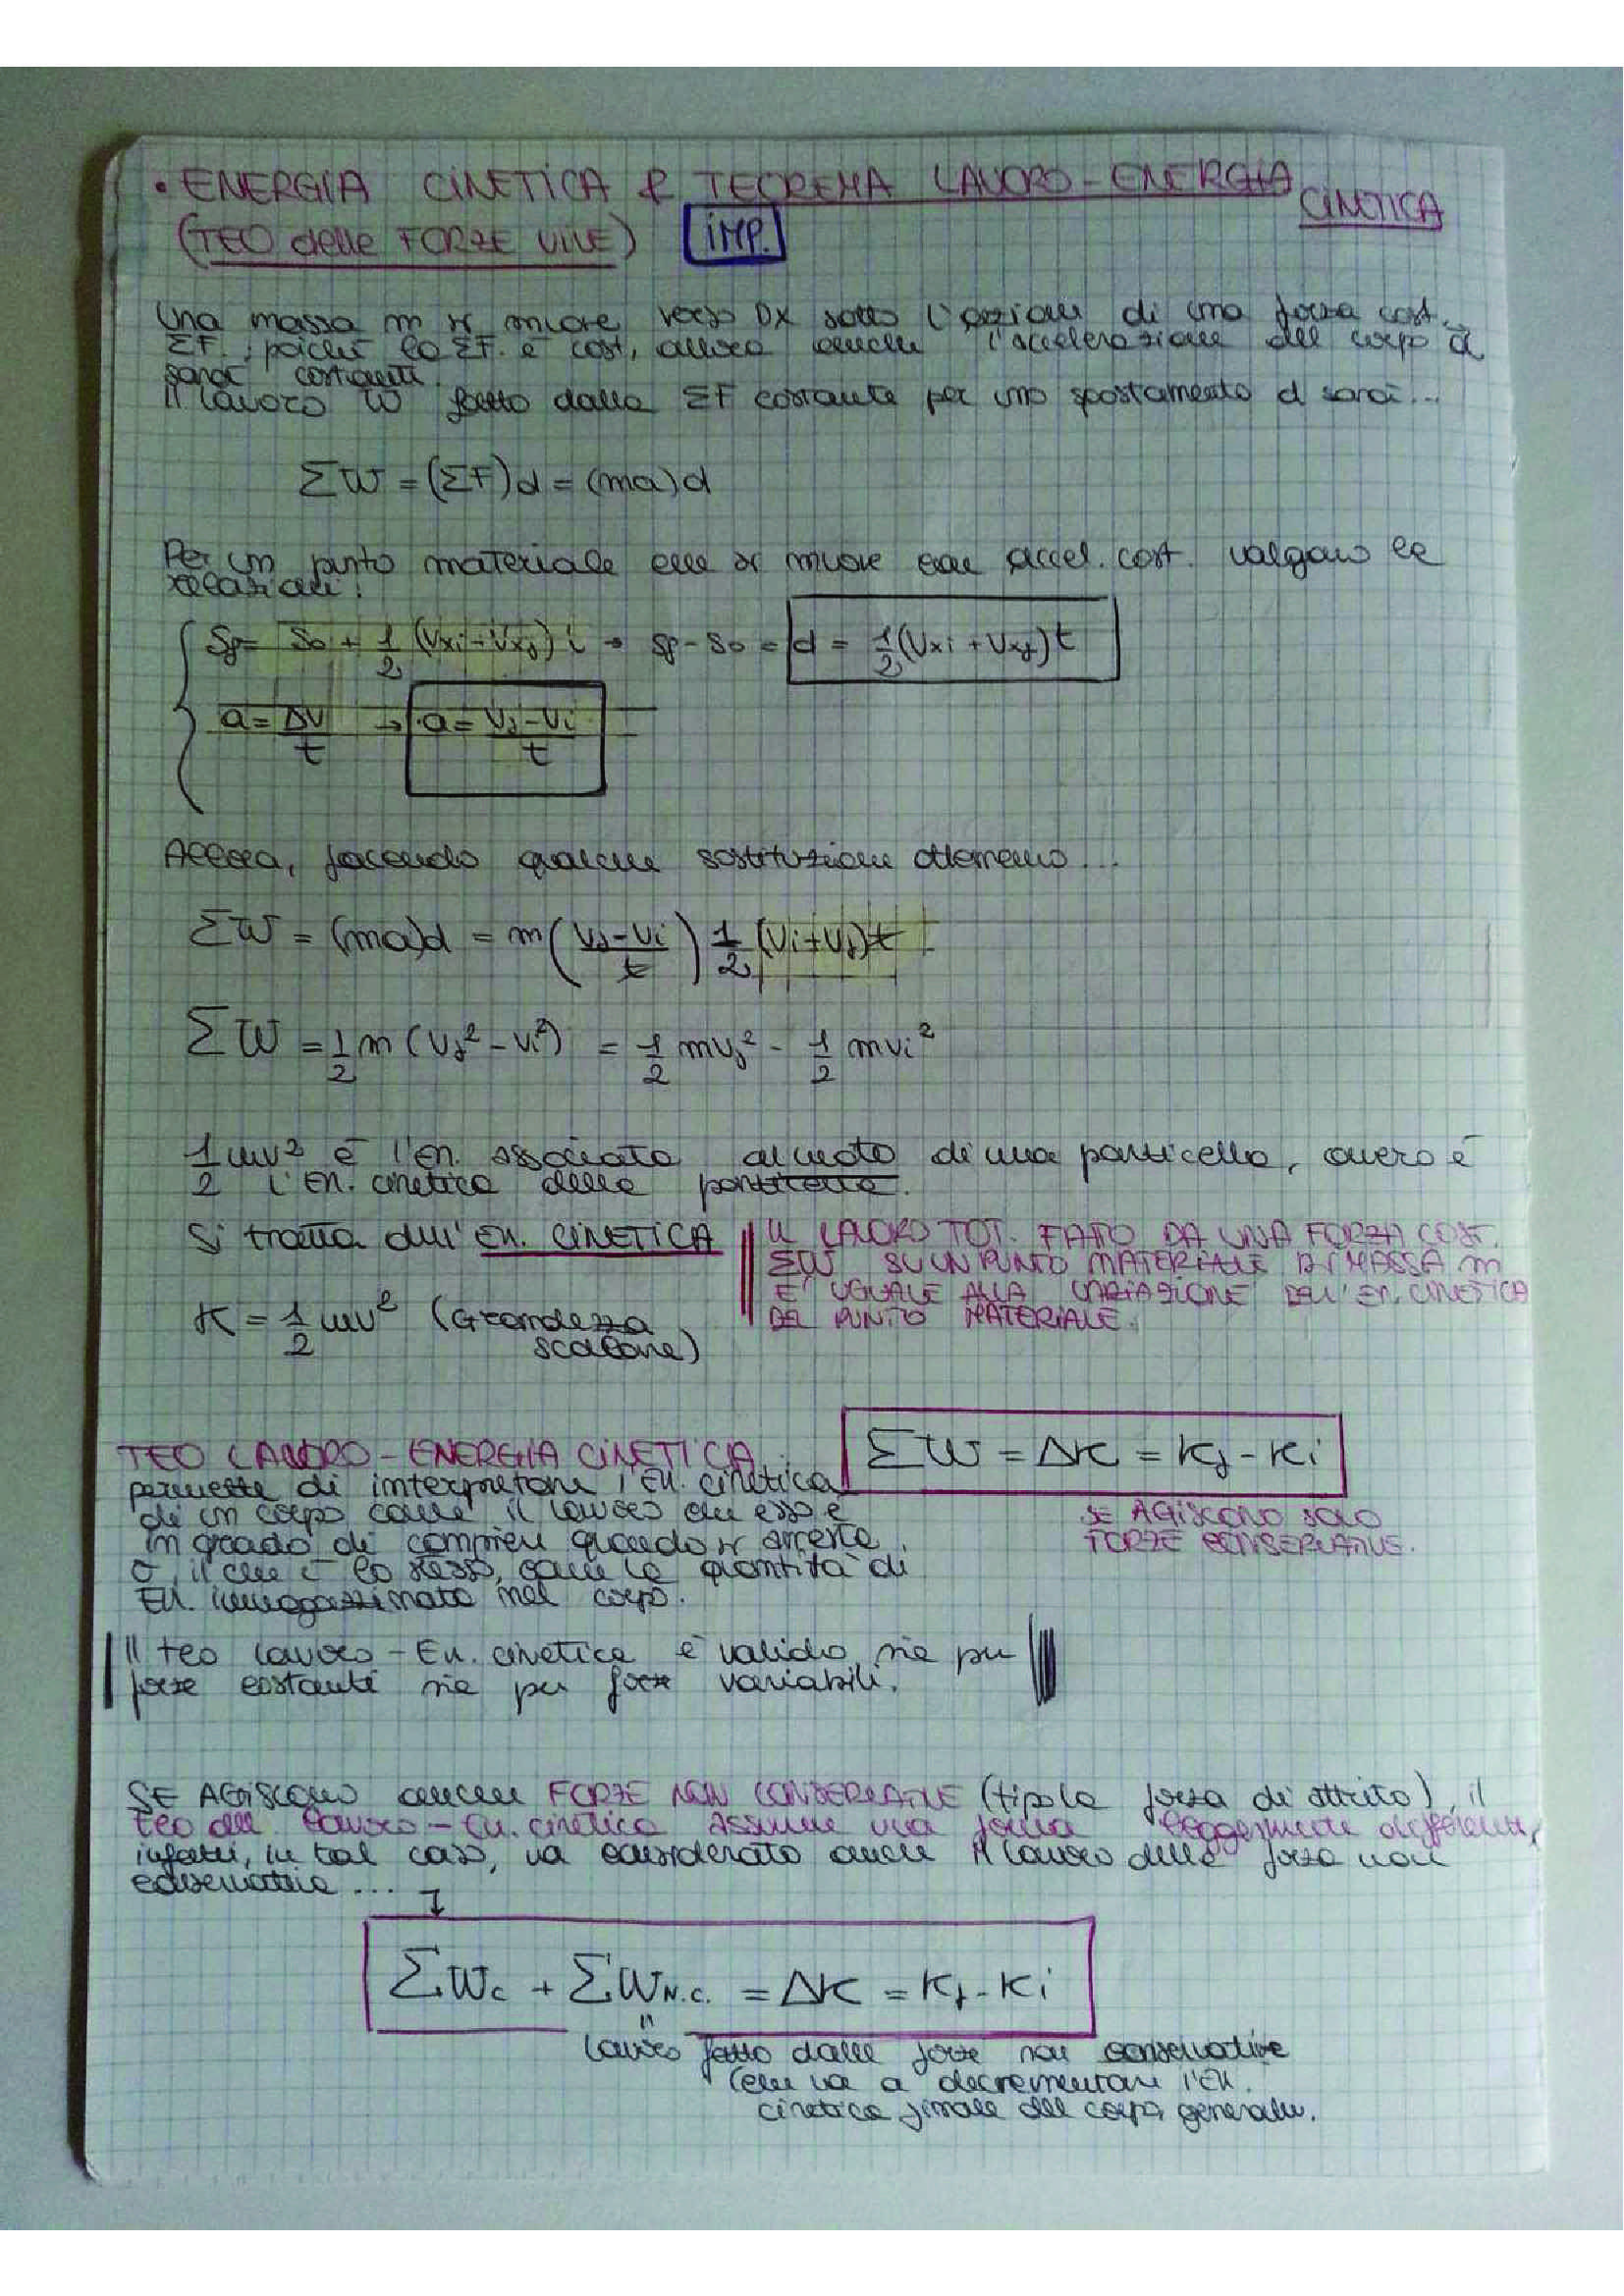 • ENERGIA CINETICA & TEOREMA LAVORO-ENERGIA CINETICA
(TEO delle FORZE VIVE) IMP.
Una massa m si muove verso DX sotto l'azione di una forza cost.
ΣF. ; poiché la ΣF. è cost, allora anche l'accelerazione del corpo a
sarà costante.
Il lavoro W fatto dalla ΣF costante per uno spostamento d sarà...
ΣW = (ΣF)d = (ma)d
Per un punto materiale che si muove con accel. cost. valgono le
relazioni:
Sf = So + 1/2 (Vxi - Vxf) t → Sf - So = d = 1/2 (Vxi + Vxf) t
a = ΔV/t → a = (Vf - Vi)/t
Allora, facendo qualche sostituzione otteniamo...
ΣW = (ma)d = m((Vf - Vi)/t) 1/2 (Vi + Vf) t
ΣW = 1/2 m (Vf² - Vi²) = 1/2 mvf² - 1/2 mvi²
1/2 mv² è l'en. associata al moto di una particella, ovvero è
l'en. cinetica della particella.
Si tratta dell'En. CINETICA
K = 1/2 mv² (Grandezza
scalare)
IL LAVORO TOT. FATTO DA UNA FORZA COST.
ΣW SU UN PUNTO MATERIALE DI MASSA m
E' UGUALE ALLA VARIAZIONE DELL'EN. CINETICA
DEL PUNTO MATERIALE.
TEO LAVORO-ENERGIA CINETICA: ΣW = ΔK = Kf - Ki
permette di interpretare l'En. cinetica
di un corpo come il lavoro che esso è
in grado di compiere quando si arresta
o, il che è lo stesso, come la quantità di
En. immagazzinata nel corpo.
SE AGISCONO SOLO
FORZE CONSERVATIVE.
Il teo lavoro-En. cinetica è valido sia per
forze costanti sia per forze variabili.
SE AGISCONO anche FORZE NON CONSERVATIVE (tipo la forza di attrito), il
teo del lavoro-En. cinetica assume una forma leggermente differente,
infatti, in tal caso, va considerato anche il lavoro delle forze non
conservative...
ΣWc + ΣWN.C. = ΔK = Kf - Ki
lavoro fatto dalle forze non conservative
(che va a decrementare l'En.
cinetica finale del corpo, generalm.